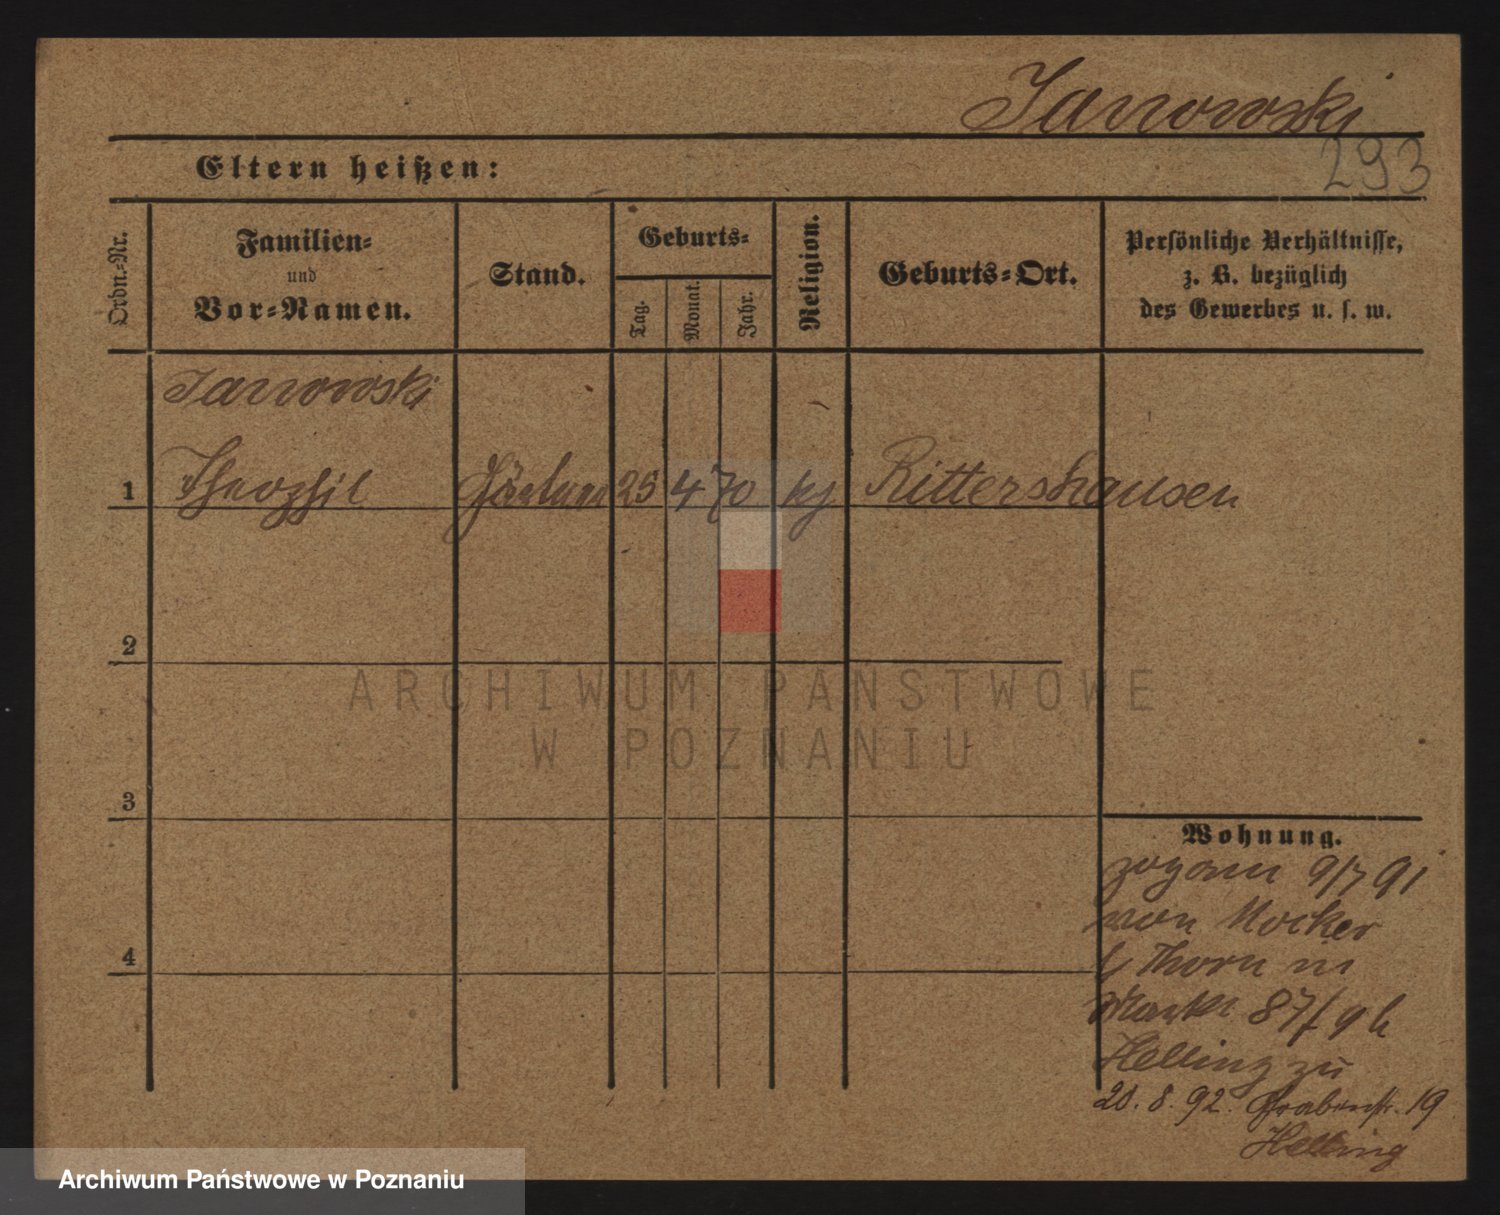 Janowski
293
Eltern heißen:
Ordn.-Nr.
Familien-
und
Vor-Namen.
Stand.
Geburts-
Tag.
Monat.
Jahr.
Religion.
Geburts-Ort.
Persönliche Verhältnisse,
z. B. bezüglich
des Gewerbes u. s. w.
Janowski
1 Theophil Gärtner 25 4 70 kj Rittershausen
2
3
4
Wohnung.
9/7 91
von Mocker
b Thorn
Markt 87/9 b
Helling zu
20. 8. 92. Grabenstr. 19
Helling
ARCHIWUM PAŃSTWOWE
W POZNANIU
Archiwum Państwowe w Poznaniu